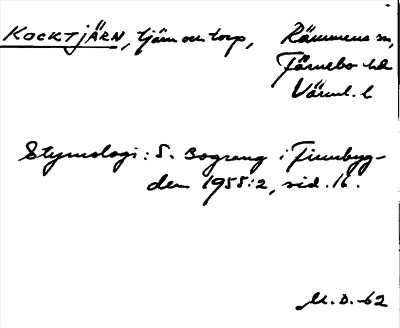 KOCKTJÄRN, tjärn och torp, Rämmens sn,
Färnebo hd
Värml. l
Etymologi: S. Bograng i Finnbyg-
den 1955:2, sid. 16.
M.D. -62